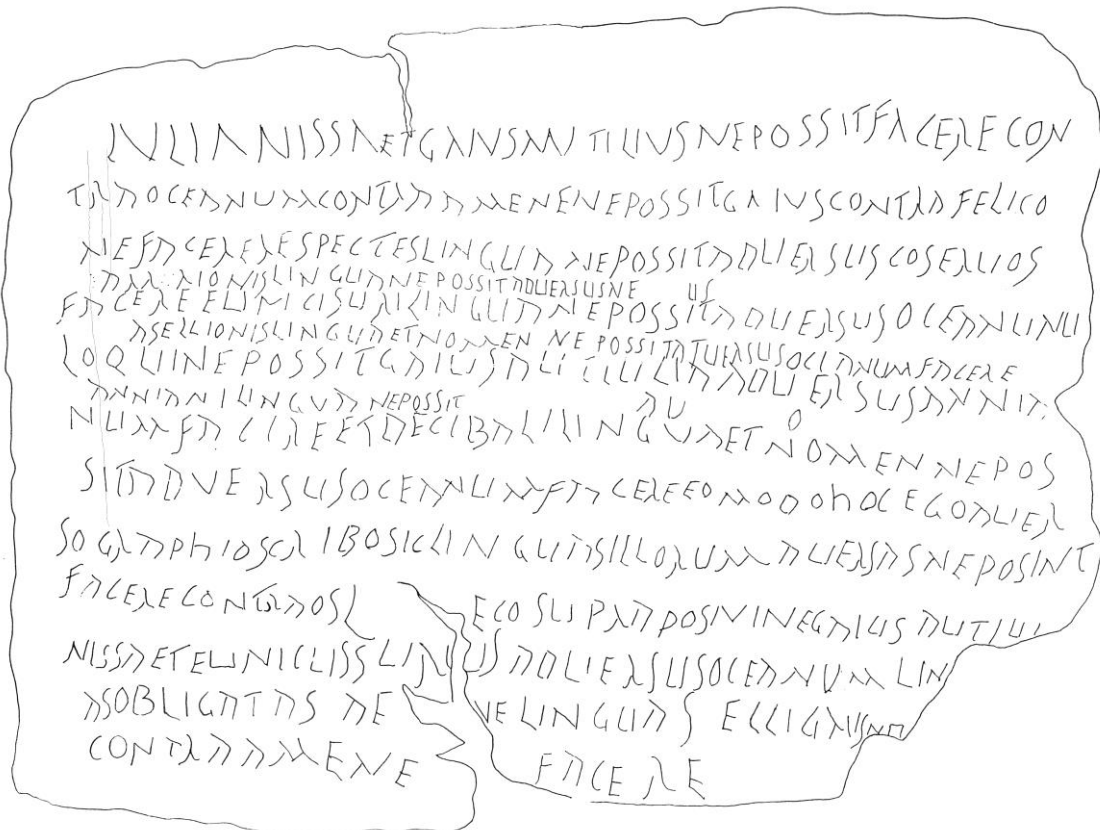 IVLIA NISSA ET GAIVS MVTILIVS NE POSSIT FACERE CON
TRA OCEANUM CONTRA AMENE NE POSSIT GAIVS CONTRA FELICO
NE FACERE RESPECTES LINGUA NE POSSIT ADUERSUS COSERUOS
LINGUA NE POSSIT ADUERSUS NE US
FACERE LINGUA NE POSSIT ADUERSUS OCEANU
ASELLIONIS LINGUA ET NOMEN NE POSSIT ATUERSUS OCIANUM FACERE
LOQUI NE POSSIT GAIUS ADUERSUS
ANNIANI LINGUA NE POSSIT
NUM FACIRE ET DECIBALI LINGUA ET NOMEN NE POS
SIT ADVERSUS OCEANUM FACERE EOMODO HOC EGO AUER
SO GRAPHIO SCRIBO SIC LINGUAS ILLORUM AUERSAS NE POSINT
FACERE CONTRA OS ECO SUPRA POSIVI NE GAIUS
NISSA ET ADUERSUS OCEANUM LIN
AS OBLIGATAS AE NE LINGUAS
CONTRA AMENE FACERE